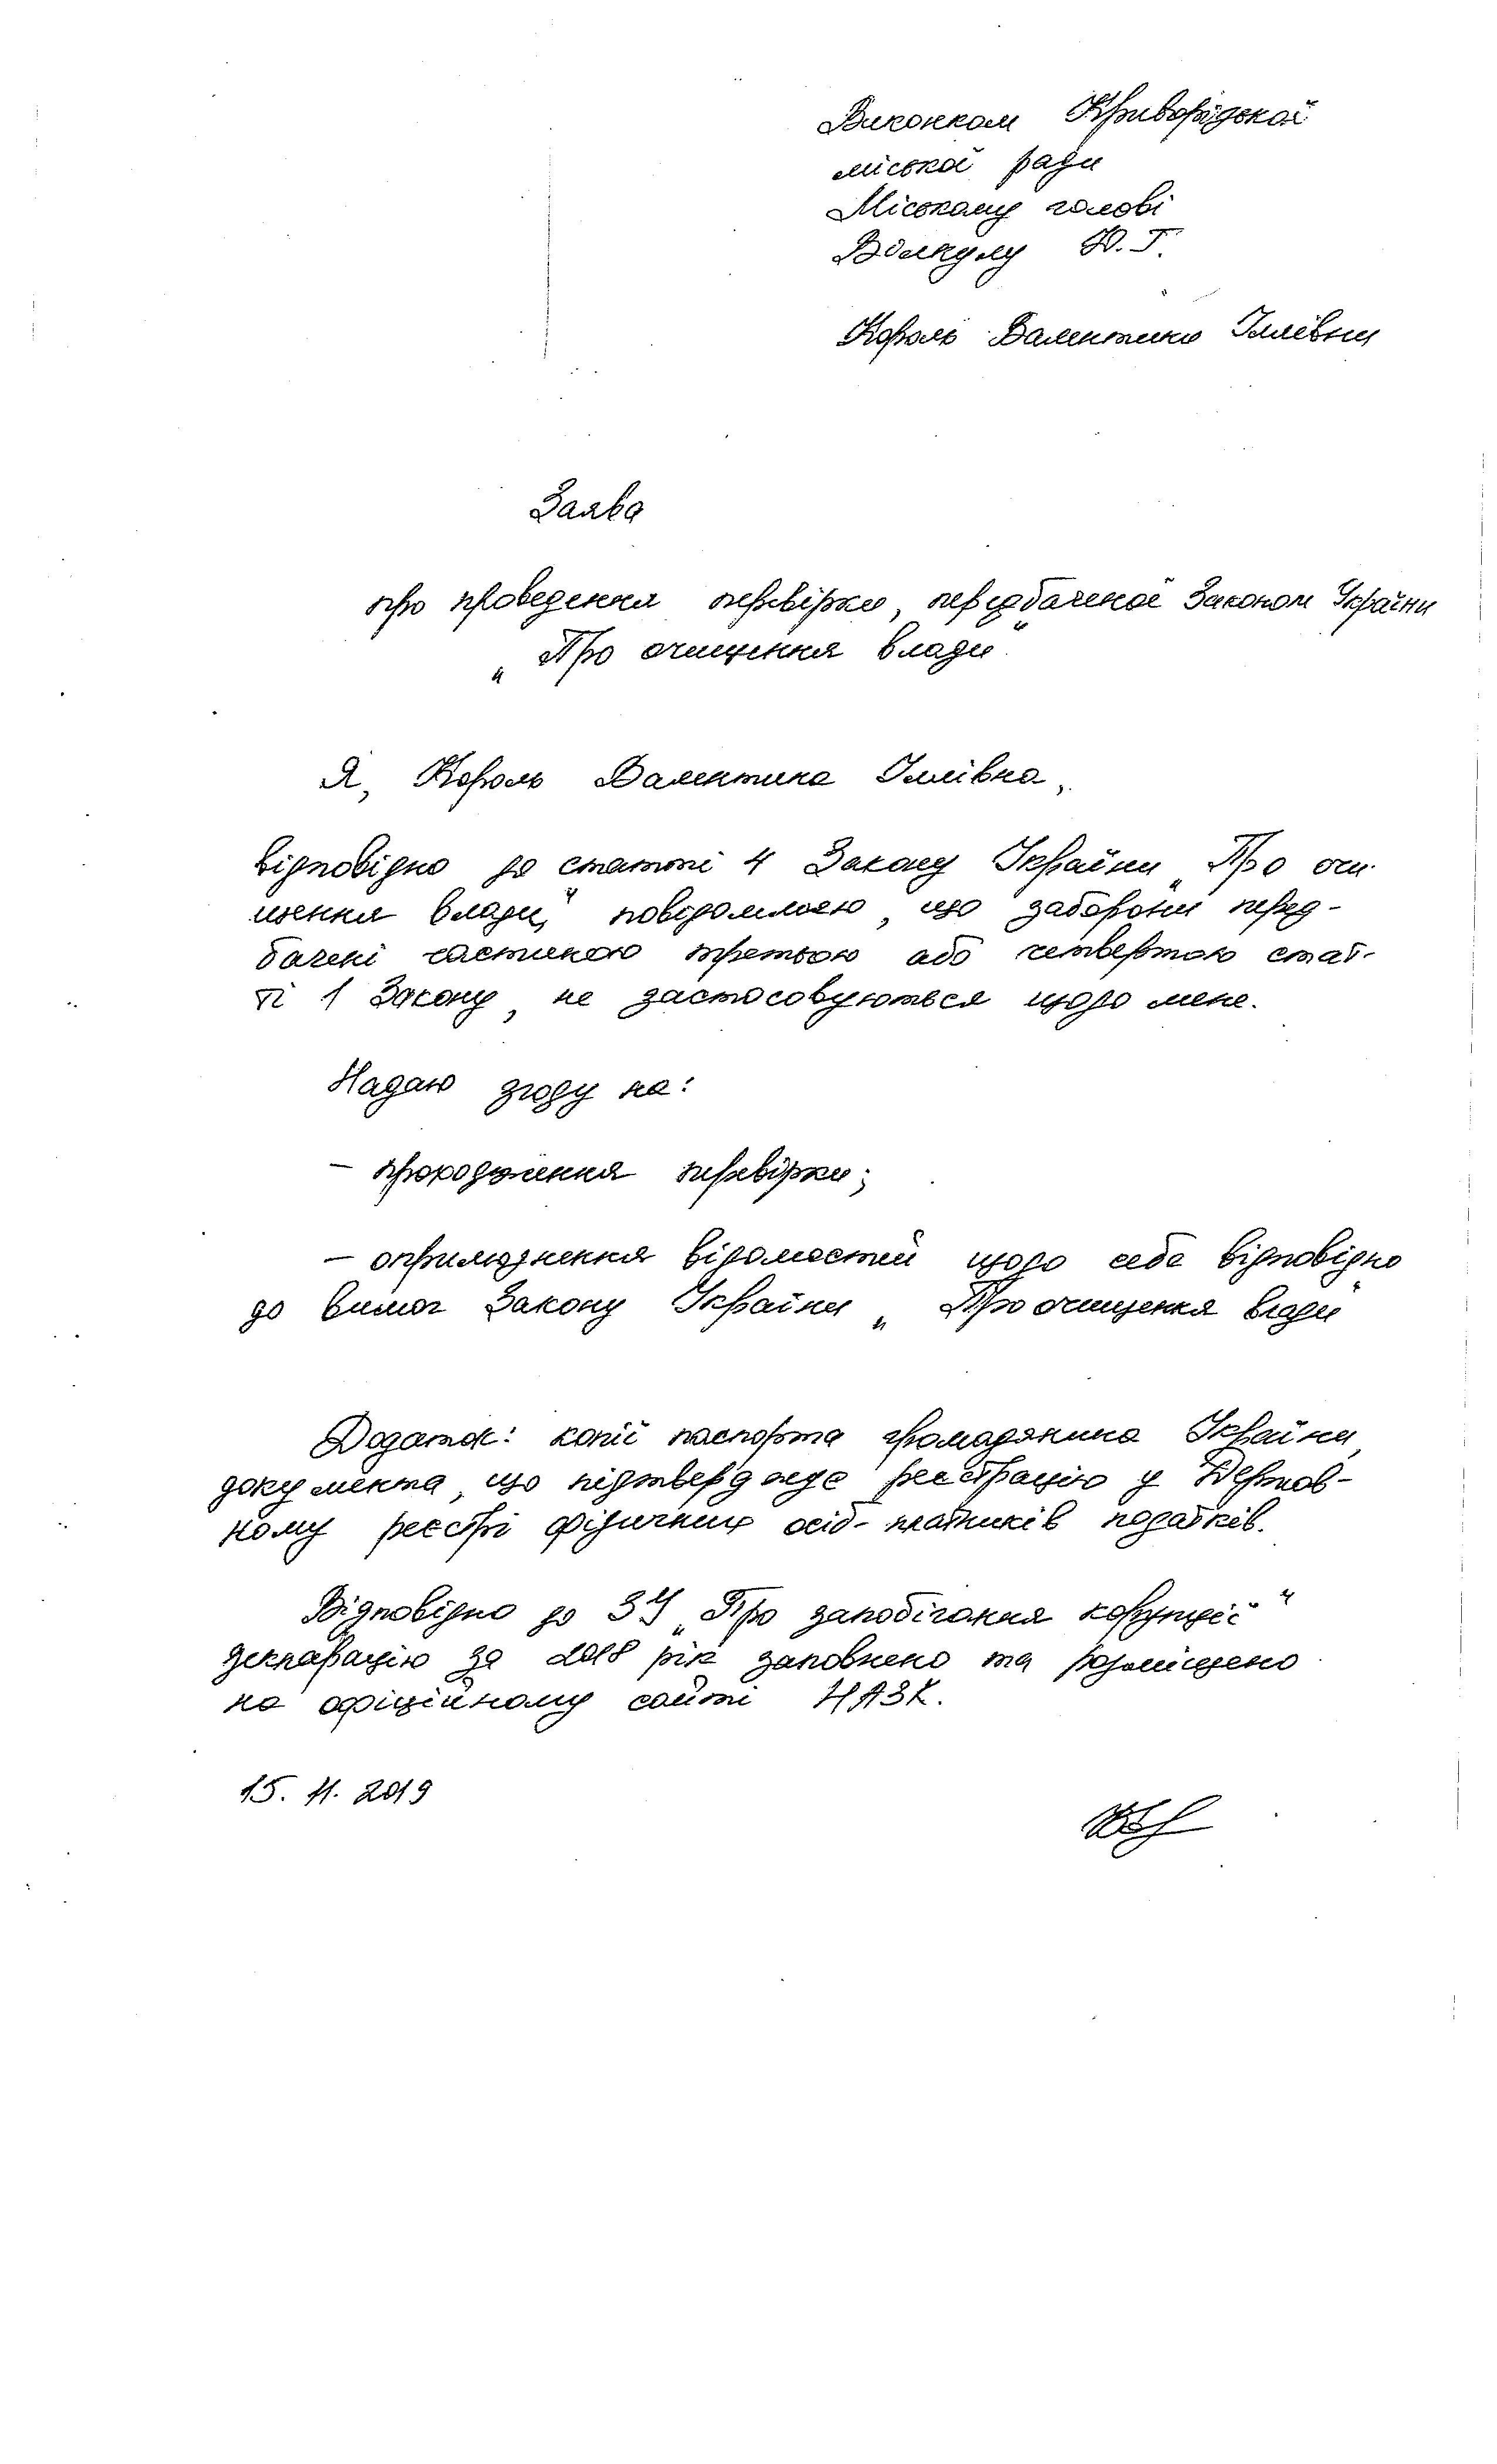 Виконком Криворідской
міської ради
Міському голові
Вілкулу Ю.Г.
Король Валентини Іллівни
Заява
про проведення перевірки, передбаченої Законом України
„Про очищення влади"
Я, Король Валентина Іллівна,
відповідно до статті 4 Закону України „Про очи-
щення влади", повідомляю, що заборони перед-
бачені частиною третьою або четвертою стат-
ті 1 Закону, не застосовуються щодо мене.
Надаю згоду на:
– проходження перевірки;
– оприлюднення відомостей щодо себе відповідно
до вимог Закону України „Про очищення влади"
Додаток: копії паспорта громадянина України,
документа, що підтверджує реєстрацію у Держав-
ному реєстрі фізичних осіб-платників податків.
Відповідно до ЗУ „Про запобігання корупції"
декларацію за 2018 рік заповнено та розміщено
на офіційному сайті НАЗК.
15.11.2019